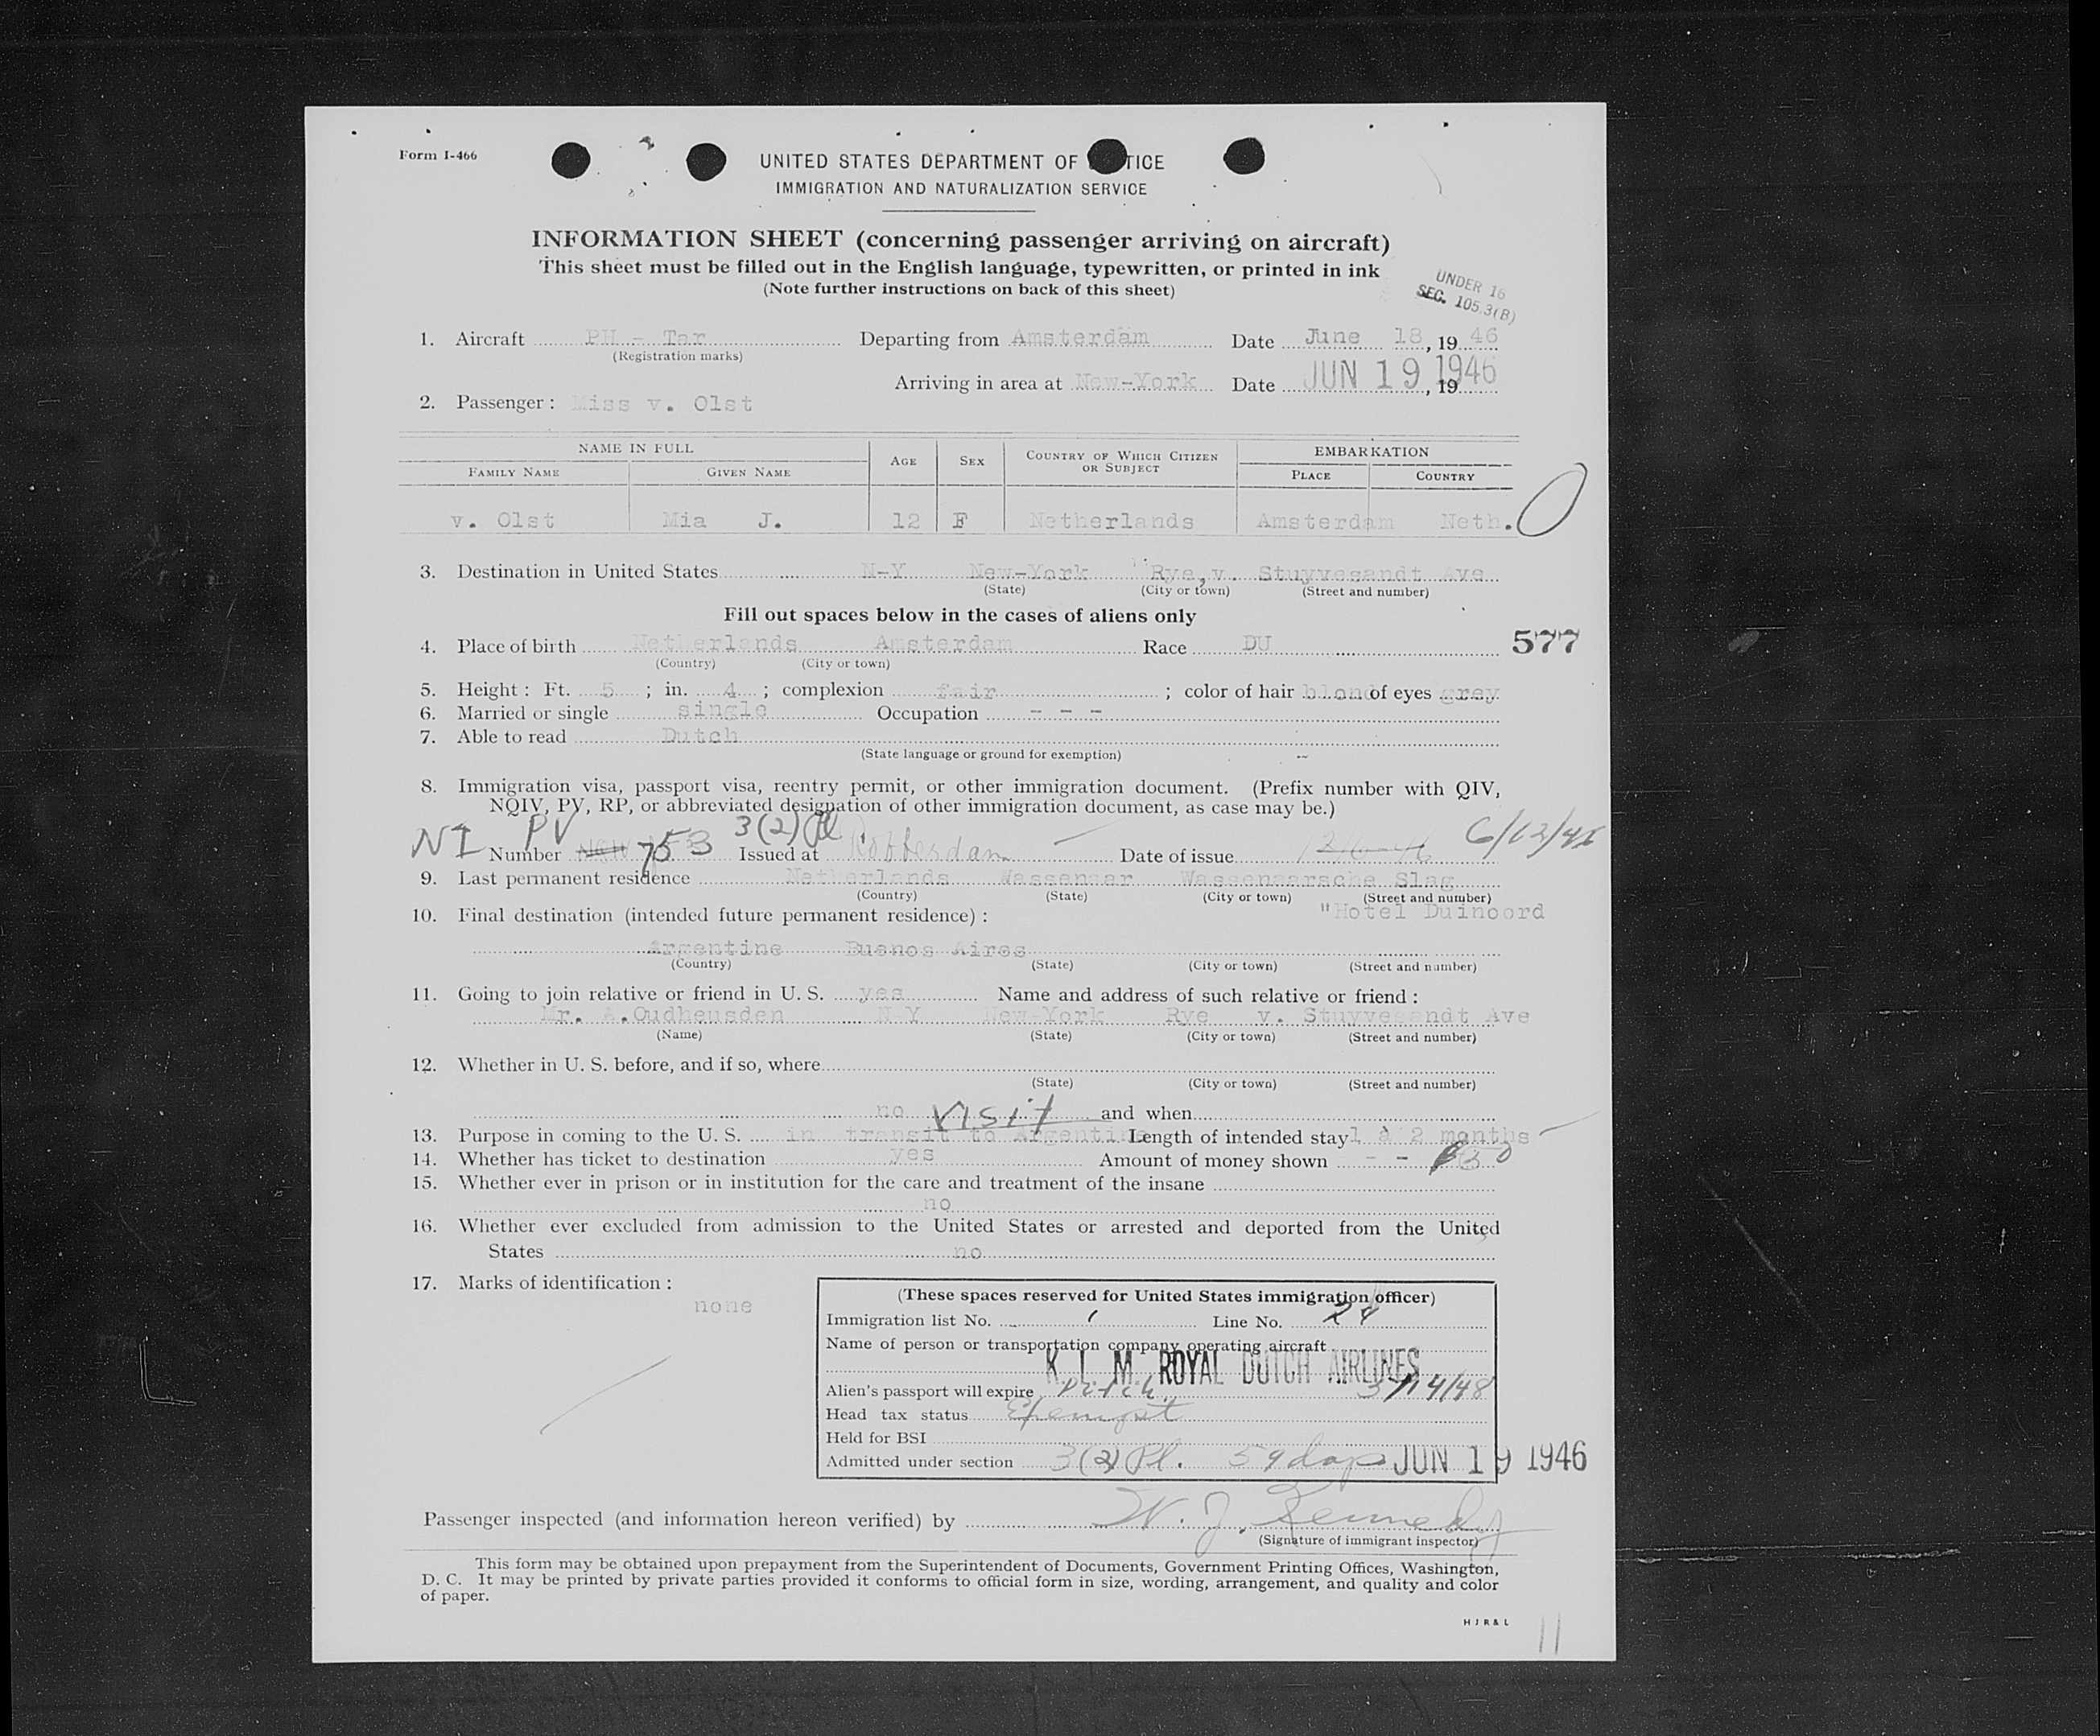 Form I-466
UNITED STATES DEPARTMENT OF TICE
IMMIGRATION AND NATURALIZATION SERVICE
INFORMATION SHEET (concerning passenger arriving on aircraft)
This sheet must be filled out in the English language, typewritten, or printed in ink
(Note further instructions on back of this sheet)
UNDER 16
SEC. 105.3(B)
1. Aircraft PH - Tar Departing from Amsterdam Date June 18, 19 46
(Registration marks)
Arriving in area at New-York Date JUN 19 1946, 19
2. Passenger: Miss v. Olst
NAME IN FULL AGE SEX COUNTRY OF WHICH CITIZEN OR SUBJECT EMBARKATION
FAMILY NAME GIVEN NAME PLACE COUNTRY
v. Olst Mia J. 12 F Netherlands Amsterdam Neth.
3. Destination in United States N-Y New-York Rye, v. Stuyvesandt Ave
(State) (City or town) (Street and number)
Fill out spaces below in the cases of aliens only
4. Place of birth Netherlands Amsterdam Race DU 577
(Country) (City or town)
5. Height: Ft. 5; in. 4; complexion fair; color of hair blond of eyes grey
6. Married or single single Occupation - - -
7. Able to read Dutch
(State language or ground for exemption)
8. Immigration visa, passport visa, reentry permit, or other immigration document. (Prefix number with QIV,
NQIV, PV, RP, or abbreviated designation of other immigration document, as case may be.)
NI PV 3(2) Pl 6/12/46
Number 753 Issued at Rotterdam Date of issue 12-6-46
9. Last permanent residence Netherlands Wassenaar Wassenaarsche Slag
(Country) (State) (City or town) (Street and number)
10. Final destination (intended future permanent residence): "Hotel Duinoord
Argentine Buenos Aires
(Country) (State) (City or town) (Street and number)
11. Going to join relative or friend in U. S. yes Name and address of such relative or friend:
Mr. A.Oudheusden N-Y New-York Rye v. Stuyvesandt Ave
(Name) (State) (City or town) (Street and number)
12. Whether in U. S. before, and if so, where
(State) (City or town) (Street and number)
no visit and when
13. Purpose in coming to the U. S. in transit to Argentine Length of intended stay 1 à 2 months
14. Whether has ticket to destination yes Amount of money shown - -
15. Whether ever in prison or in institution for the care and treatment of the insane
no
16. Whether ever excluded from admission to the United States or arrested and deported from the United
States no
17. Marks of identification:
none
(These spaces reserved for United States immigration officer)
Immigration list No. 1 Line No. 24
Name of person or transportation company operating aircraft
K L M ROYAL DUTCH AIRLINES
Alien's passport will expire Dutch 3/14/48
Head tax status Exempt
Held for BSI
Admitted under section 3(2) Pl. 59 days JUN 19 1946
Passenger inspected (and information hereon verified) by W. J. Kennedy
(Signature of immigrant inspector)
This form may be obtained upon prepayment from the Superintendent of Documents, Government Printing Offices, Washington,
D. C. It may be printed by private parties provided it conforms to official form in size, wording, arrangement, and quality and color
of paper.
H J R & L
11